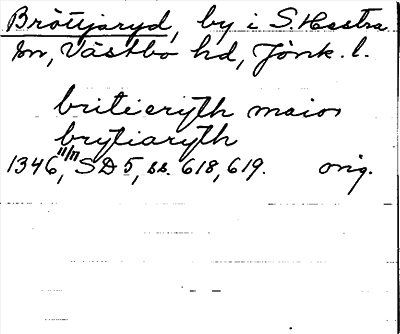 Bröttjaryd, by i S. Hestra
sn, Västbo hd, Jönk. l.
britieryth maior
brytiaryth
1346 11/11, SD 5, ss. 618, 619. orig.